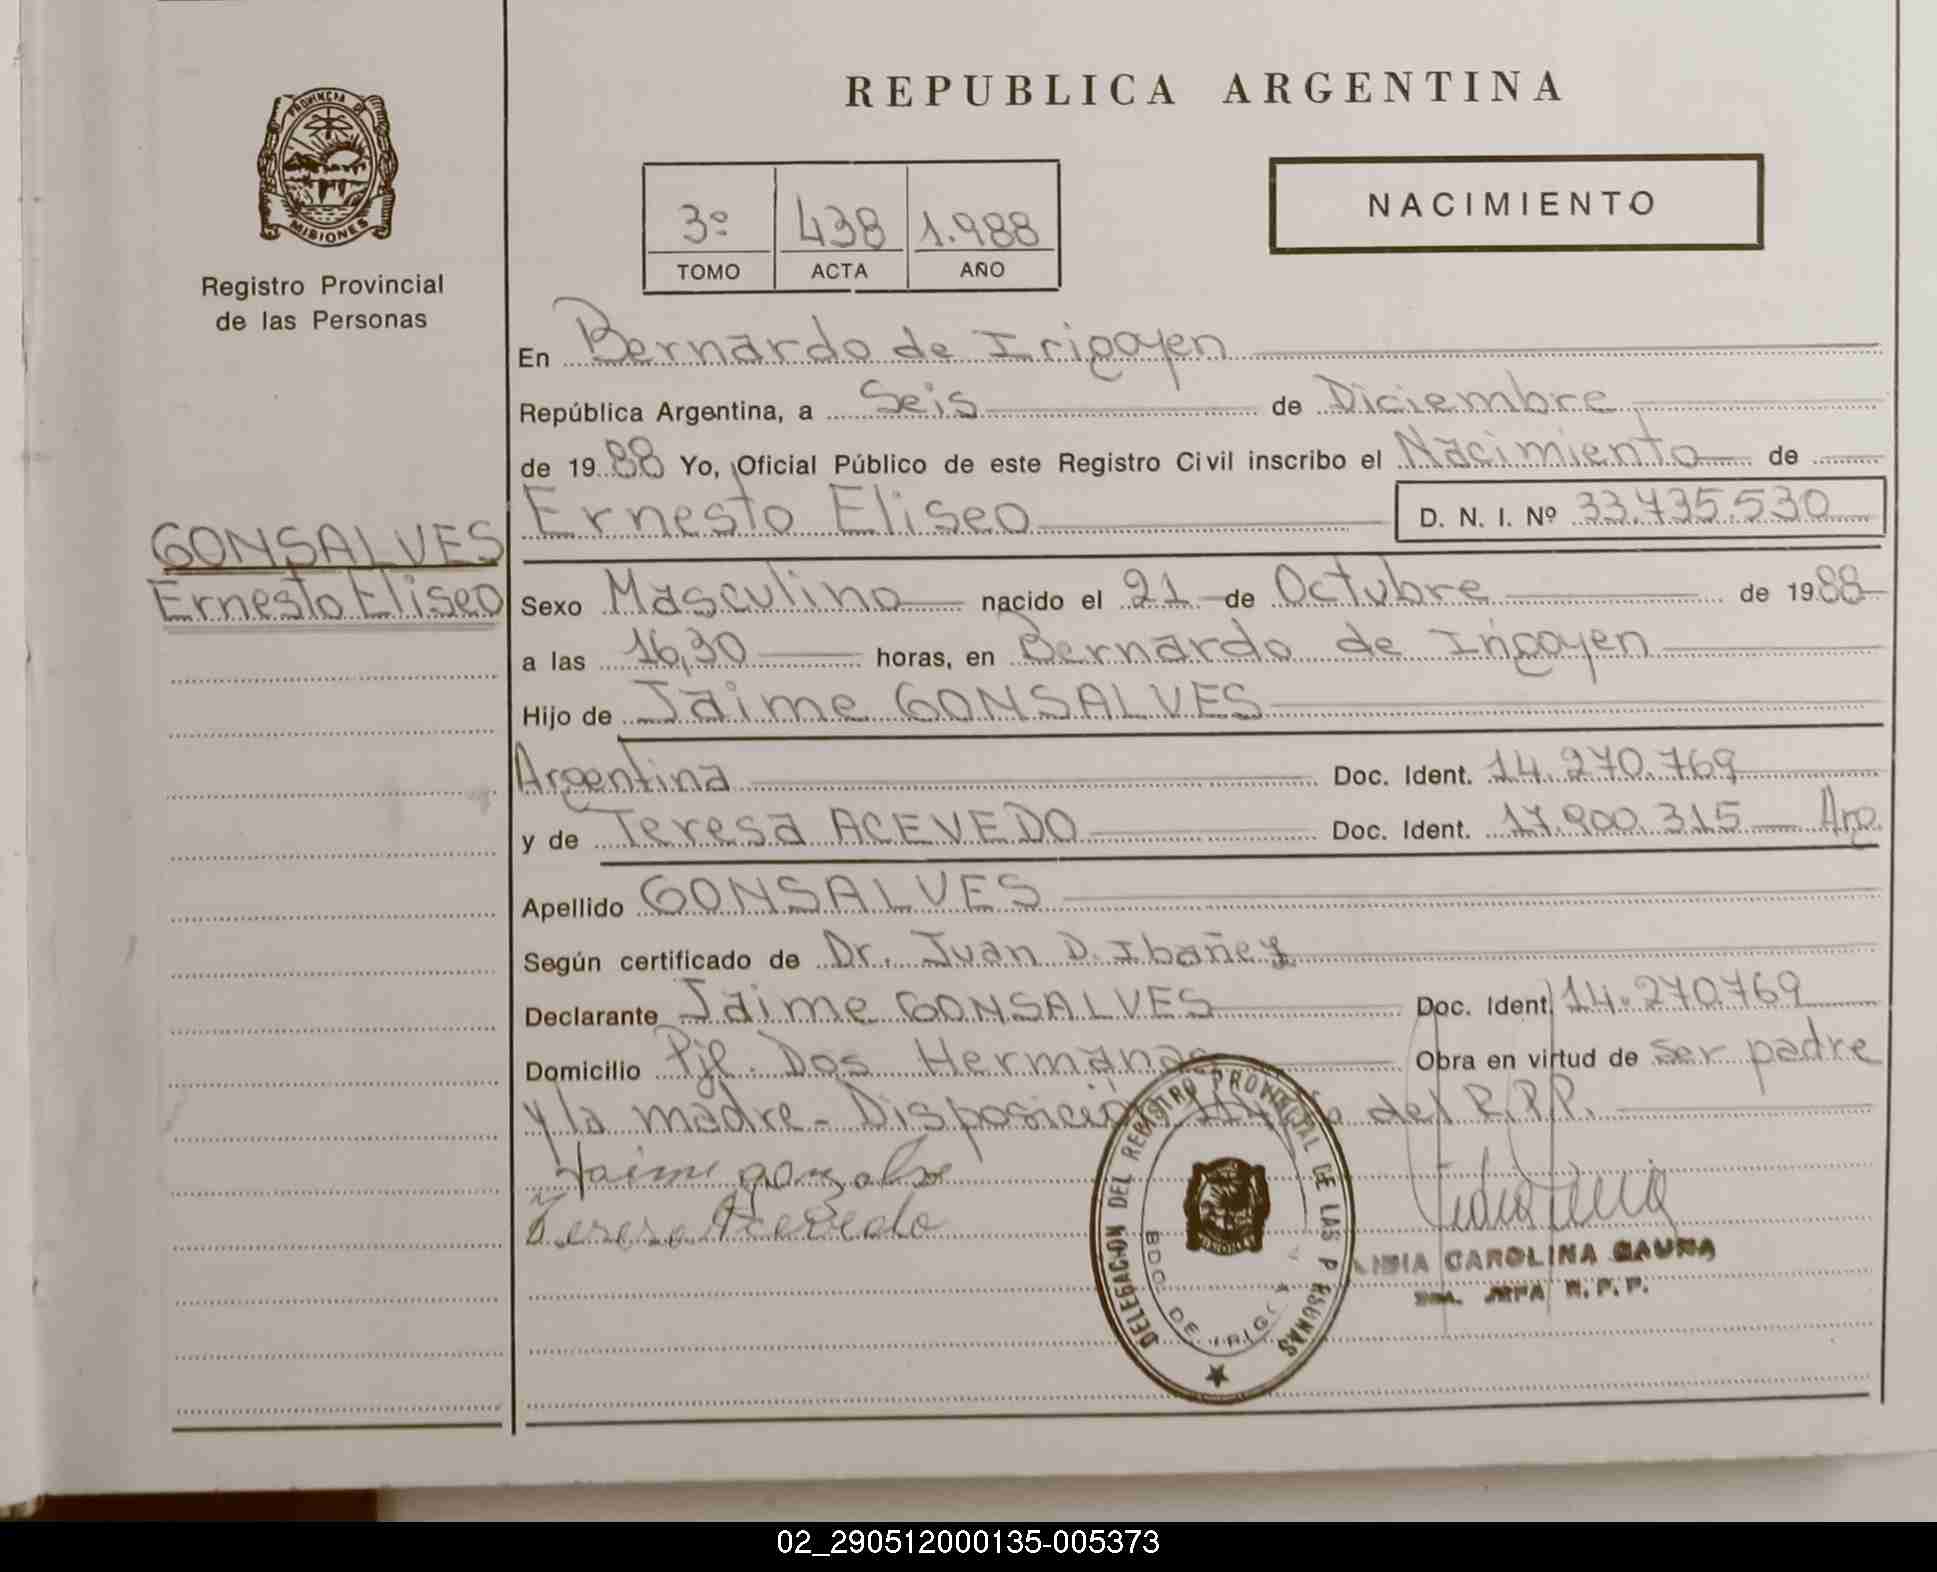 REPUBLICA ARGENTINA
PROVINCIA DE
MISIONES
Registro Provincial
de las Personas
3º 438 1.988
TOMO ACTA AÑO
NACIMIENTO
En Bernardo de Irigoyen
República Argentina, a Seis de Diciembre
de 1988 Yo, Oficial Público de este Registro Civil inscribo el Nacimiento de
Ernesto Eliseo D. N. I. Nº 33.735.530
GONSALVES
Ernesto Eliseo
Sexo Masculino nacido el 21 de Octubre de 1988
a las 16,30 horas, en Bernardo de Irigoyen
Hijo de Jaime GONSALVES
Argentina Doc. Ident. 14.270.769
y de Teresa ACEVEDO Doc. Ident. 17.900.315 Arg.
Apellido GONSALVES
Según certificado de Dr. Juan D. Ibañez
Declarante Jaime GONSALVES Doc. Ident. 14.270769
Domicilio Pje. Dos Hermanas Obra en virtud de ser padre
y la madre - Disposición del R.P.P.
Jaime gonzalve
Teresa Acevedo
DELEGACION DEL REGISTRO PROVINCIAL DE LAS PERSONAS
BDO. DE IRIG
CAROLINA
R. P. P.
02_290512000135-005373